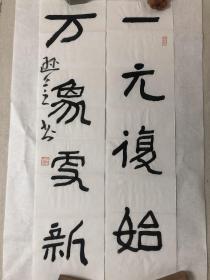 一元復始
万象更新